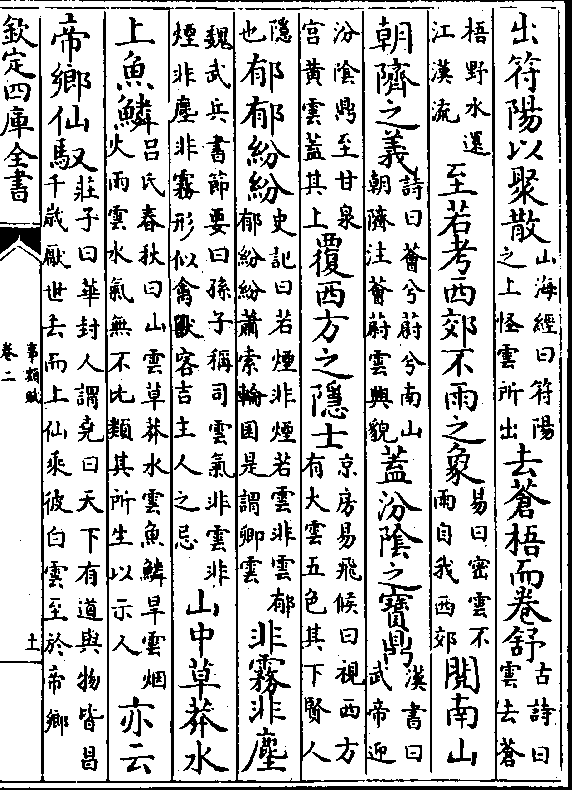 出符陽以聚散山海經曰符陽之上怪雲所出去蒼梧而卷舒古詩曰雲去蒼
梧野水還江漢流至若考西郊不雨之象易曰密雲不雨自我西郊閱南山
朝隮之義詩曰薈兮蔚兮南山朝隮注薈蔚雲興貌蓋汾陰之寳鼎漢書曰武帝迎
汾陰鼎至甘泉宮黃雲蓋其上覆西方之隱士京房易飛候曰視西方有大雲五色其下賢人
隱也郁郁紛紛史記曰若煙非煙若雲非雲郁郁紛紛蕭索輪囷是謂卿雲非霧非塵
魏武兵書節要曰孫子稱司雲氣非雲非煙非塵非霧形似禽獸客吉主人之忌山中草莽水
上魚鱗呂氏春秋曰山雲草莽水雲魚鱗旱雲烟火雨雲水氣無不比類其所生以示人亦云
帝鄉仙馭莊子曰華封人謂堯曰天下有道與物皆昌千歲厭世去而上仙乘彼白雲至於帝鄉
欽定四庫全書
事類賦
卷二
十一